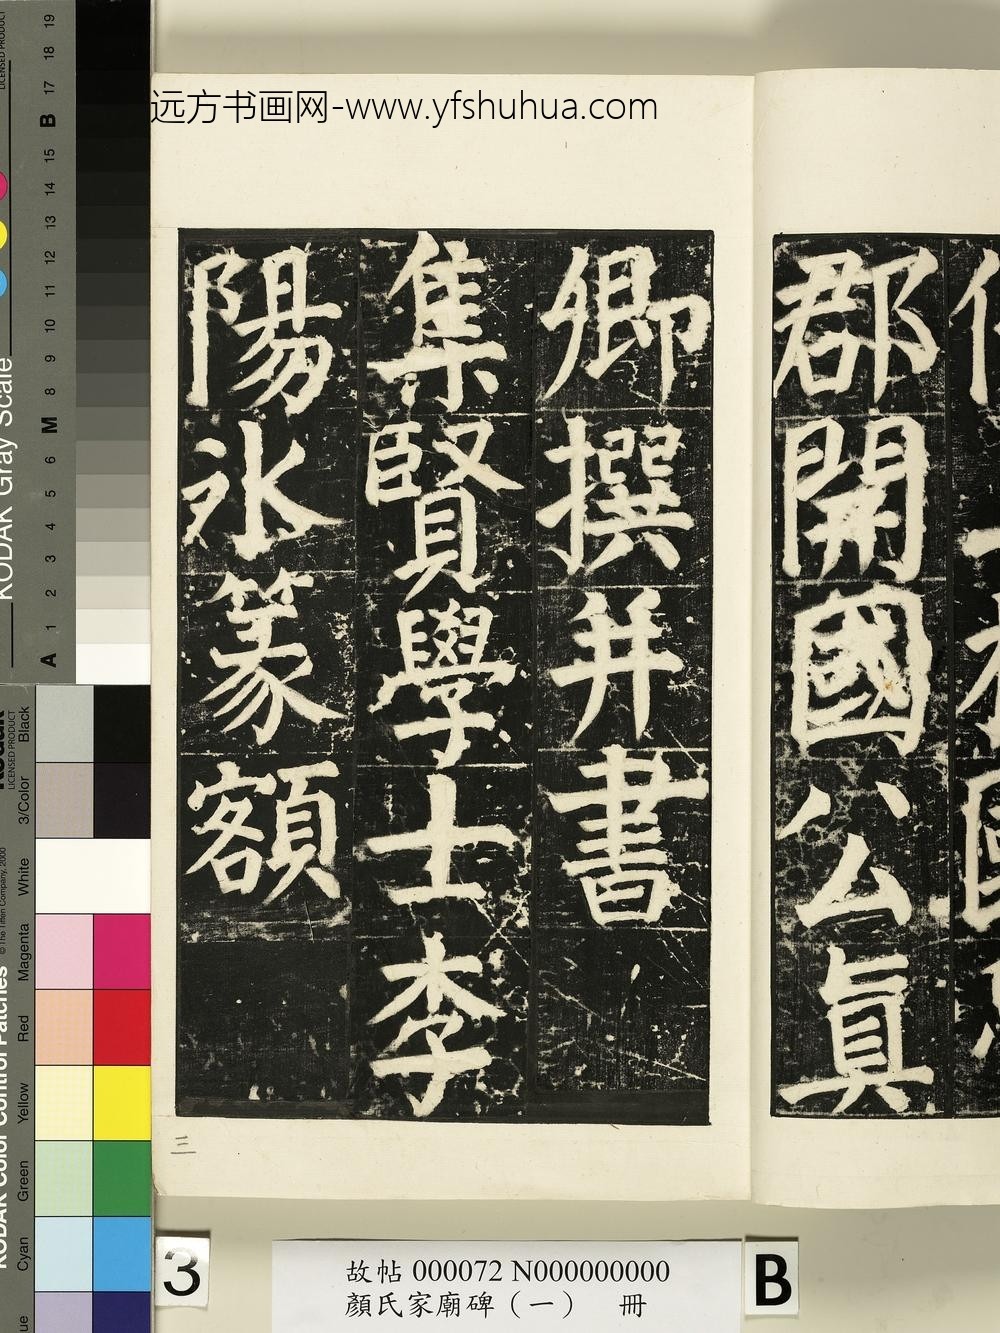 远方书画网-www.yfshuhua.com
郡開國公真
卿撰并書
集賢學士李
陽冰篆額
三
3
故帖 000072 N000000000
顏氏家廟碑（一） 冊
B
KODAK Gray Scale
LICENSED PRODUCT
A 1 2 3 4 5 6 M 8 9 10 11 12 13 14 15 B 17 18 19
KODAK Color Control Patches
© The Tiffen Company, 2000
LICENSED PRODUCT
Cyan Green Yellow Red Magenta White 3/Color Black